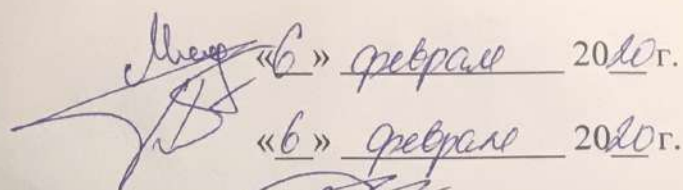 «6» феврале 2020г.
«6» феврале 2020г.